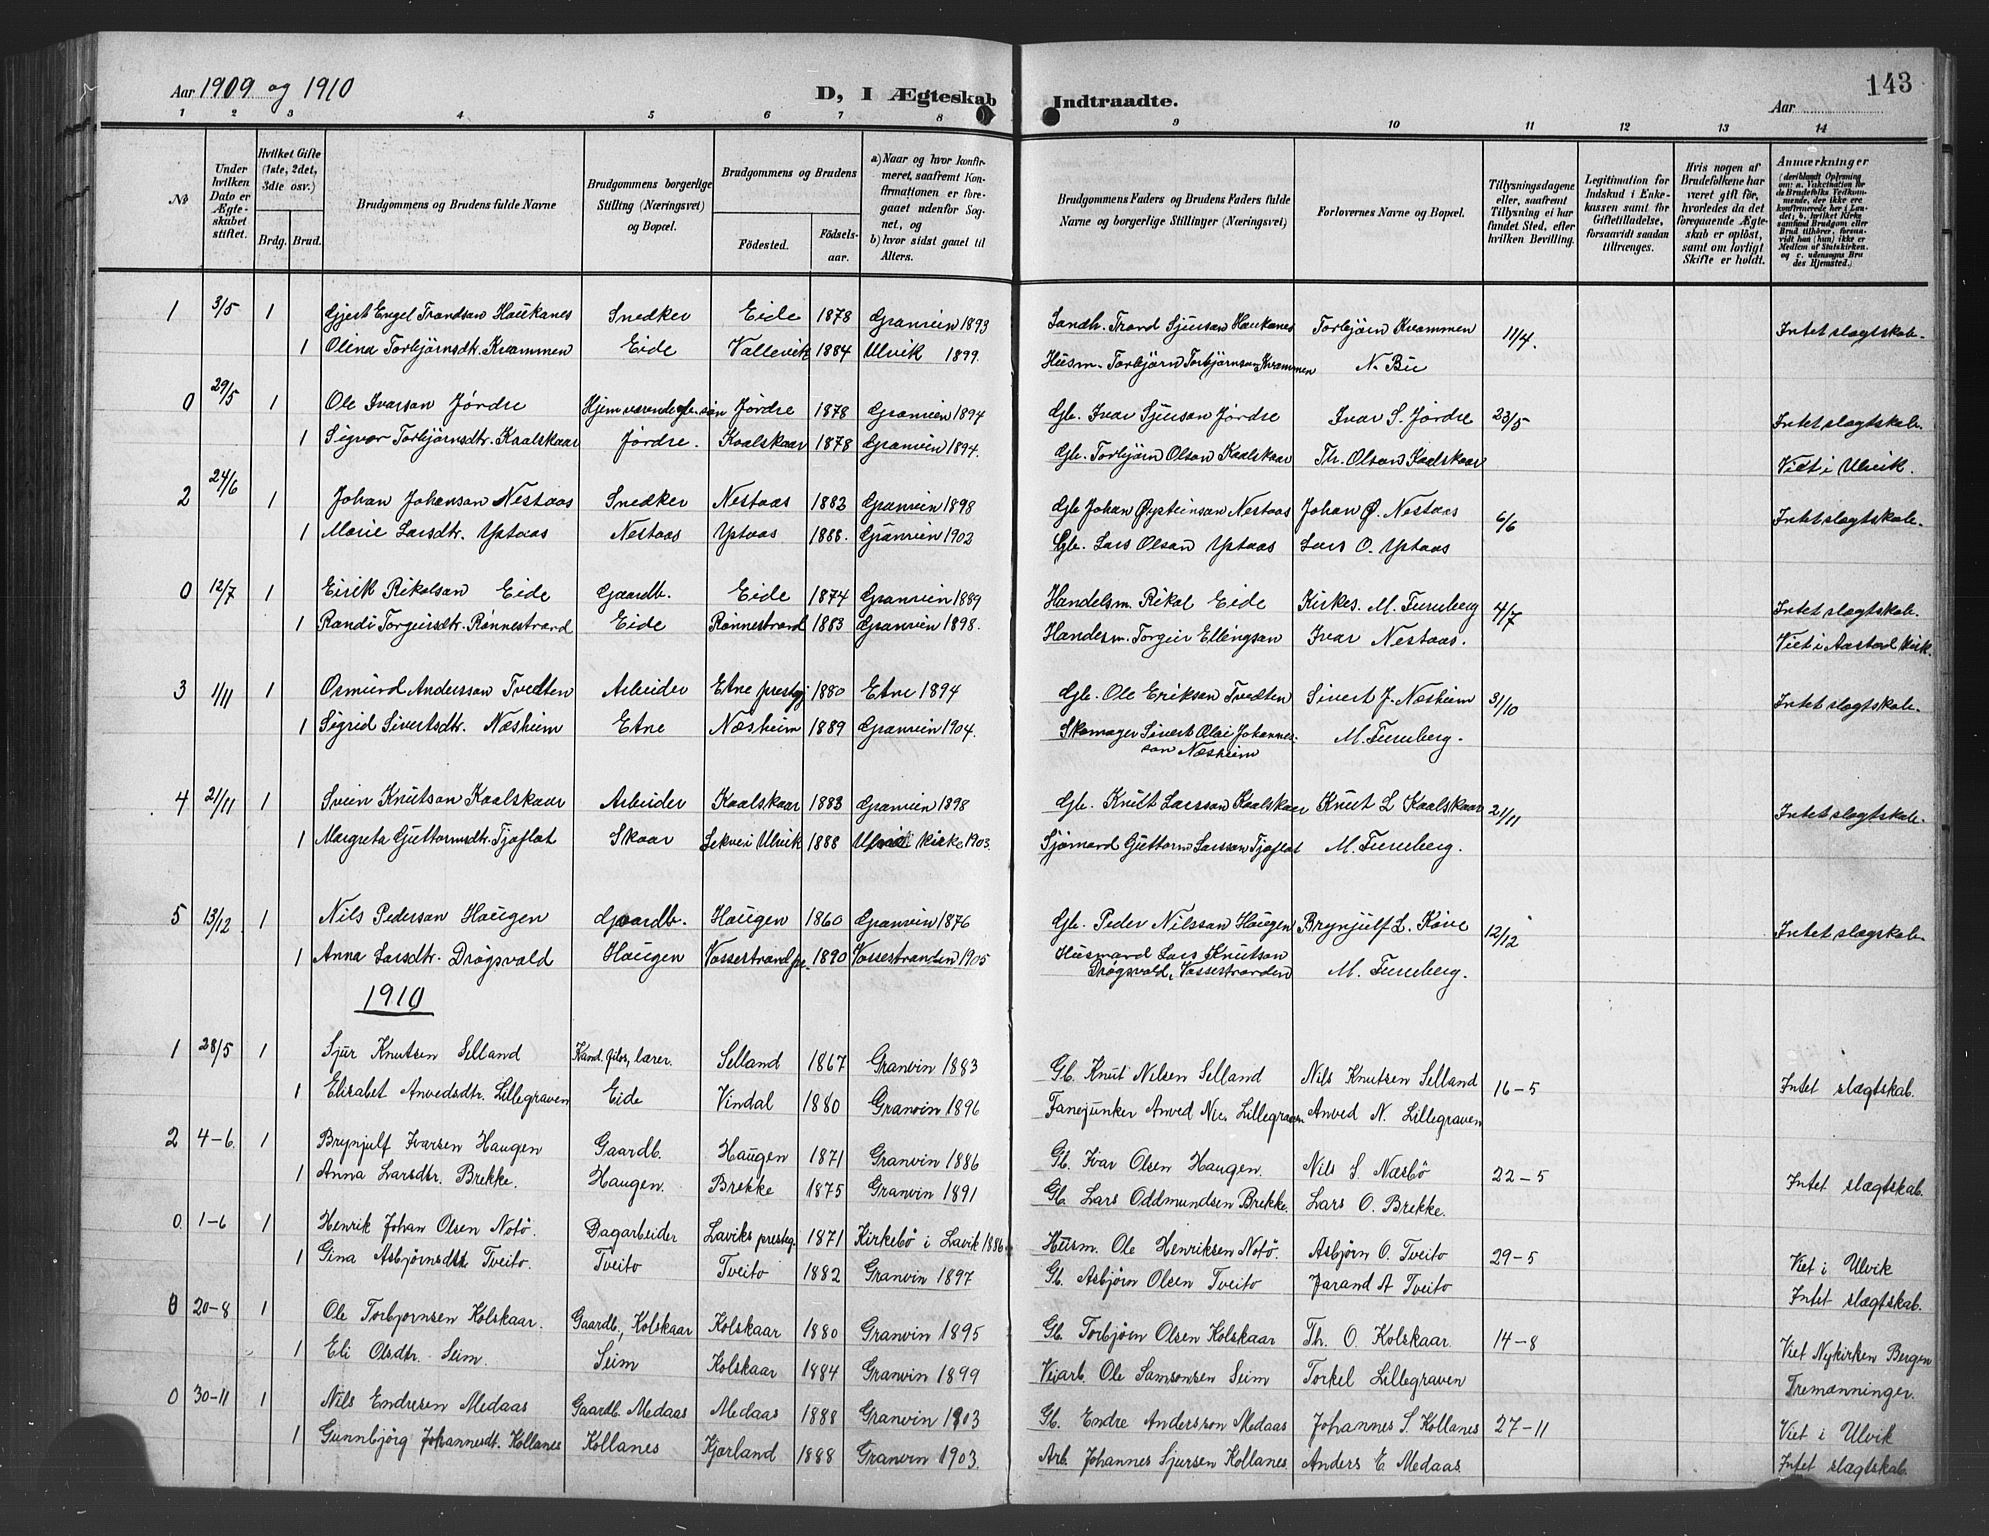 Aar 1909 og 1910 D, I Ægteskab Indtraadte. Aar 143
1 2 3 4 5 6 7 8 9 10 11 12 13 14
No
Under hvilken Dato er Ægteskabet stiftet.
Hvilket Gifte (1ste, 2det, 3die osv.)
Brdg. Brud.
Brudgommens og Brudens fulde Navne
Brudgommens borgerlige Stilling (Næringsvei) og Bopæl.
Brudgommens og Brudens
Fødested. Fødselsaar.
a) Naar og hvor konfirmeret, saafremt Konfirmationen er foregaaet udenfor Sognet, og
b) hvor sidst gaaet til Alters.
Brudgommens Faders og Brudens Faders fulde Navne og borgerlige Stillinger (Næringsvei)
Forlovernes Navne og Bopæl.
Tillysningsdagene eller, saafremt Tillysning ei har fundet Sted, efter hvilken Bevilling.
Legitimation for Indskud i Enkekassen samt for Giftetilladelse, forsaavidt saadan tiltrænges.
Hvis nogen af Brudefolkene har været gift før, hvorledes da det foregaaende Ægteskab er opløst, samt om lovligt Skifte er holdt.
Anmærkninger
(deriblandt Oplysning om: a. Vakcination for de Brudefolks Vedkommende, der ikke ere konfirmerede her i Landet; b. hvilket Kirkesamfund Brudgom eller Brud tilhører, forsaavidt han (hun) ikke er Medlem af Statskirken, og c. udensogns Brudes Hjemsted.)
1 3/5 1 Gjert Engel Trondsen Haukanes Snedker Eide 1878 Granvin 1893 Landh. Trond Sjursan Haukanes Torbjørn Kvammen 11/4. Intet slægtskab.
1 Olina Torbjørnsdtr. Kvammen Eide Vallevik 1884 Ulvik 1899. Husm. Torbjørn Torbjørnson Kvammen N. Bu
0 29/5 1 Ole Ivarson Jørdre Hjemværende gb. søn Jørdre 1878 Granvin 1894 Gb. Ivar Sjurson Jørdre Ivar S. Jørdre 23/5 Intet slægtskab.
1 Sigvor Torbjørnsdtr. Kaalskaar Jørdre. Kaalskaar 1878 Granvin 1894. Gb. Torbjørn Olson Kaalskaar Th. Olson Kaalskaar Viet i Ulvik.
2 24/6 1 Johan Johanson Nestaas Snedker Nestaas 1882 Granvin 1898 Gb Johan Øysteinsan Nestaas Johan Ø. Nestaas 6/6 Intet slægtskab.
1 Marie Larsdtr. Ystaas Nestaas Ystaas 1888. Granvin 1902 Gb. Lars Olson Ystaas Lars O. Ystaas
0 12/7 1 Eirik Rikolson Eide Gaardb. Eide 1874 Granvin 1889 Handelsm. Rikol Eide Kirkes. M. Furuberg 4/7 Intet slægtskab.
1 Randi Torgeirsdtr. Rønnestrand Eide Rønnestrand 1883 Granvin 1898. Handersm. Torgeir Ellingsan Ivar Nestaas. Viet i Aastad kirk.
3 1/11 1 Osmund Anderson Tvedten Arbeider Etne prestgj 1880 Etne 1894 Gb. Ole Erikson Tvedten Sivert J. Næsheim 31/10 Intet slægtskab.
1 Sigrid Sivertsdtr. Næsheim Etne Næsheim 1889 Granvin 1904. Skomager Sivert Olai Johannesson Næsheim M. Furuberg.
4 21/11 1 Svein Knutson Kaalskaar Arbeider Kaalskaar 1883 Granvin 1898 Gb. Knut Larsson Kaalskaar Knut L Kaalskaar 21/11 Intet slægtskab.
1 Margreta Guttormsdtr. Tjoflot Skaar Sekvei Ulvik 1888 Ulvik kirke 1903. Sjømand Guttorm Larsson Tjoflot M. Furuberg.
5 13/12 1 Nils Pederson Haugen Gaardb. Haugen 1860 Granvin 1876 Gb. Peder Nilsson Haugen Brynjulf L. Kove 12/12 Intet slægskab.
1 Anna Larsdtr. Drøgsvald Haugen Vossestrand pr. 1890 Vossestranden 1905 Husmand Lars Knutson Drøgsvald, Vossestranden M. Furuberg.
1910
1 28/5 1 Sjur Knutsen Selland Kand. filos, lærer. Selland 1867 Granvin 1883 Gb. Knut Nilsen Selland Nils Knutsen Selland 16-5 Intet slægtskab.
1 Elisabet Anvedsdtr. Lillegraven Eide Vindal 1880 Granvin 1896 Fanejunker Anved Nic. Lillegraven Anved N. Lillegraven
2 4-6 1 Brynjulf Ivarsen Haugen Gaardb. Haugen 1871 Granvin 1886 Gb. Ivar Olsen Haugen. Nils S. Næsbö 22-5 Intet slægtskab.
1 Anna Larsdtr. Brekke. Haugen. Brekke 1875 Granvin 1891 Gb. Lars Oddmundsen Brekke. Lars O. Brekke.
0. 1-6 1 Henrik Johan Olsen Notö. Dagarbeider Laviks presteg. 1871 Kirkebö i Lavik 1886. Husm. Ole Henriksen Notö. Asbjörn O. Tveito 29-5 Viet i Ulvik
1 Gina Asbjørnsdtr Tveito. Tveito Tveito 1882 Granvin 1897 Gb. Asbjörn Olsen Tveito Jarand A Tveito Intet slægtskab.
0 20-8 1 Ole Torbjørnsen Kolskaar. Gaardb, Kolskaar Kolskaar 1880 Granvin 1895 Gb. Torbjörn Olsen Kolskaar Th. O. Kolskaar. 14-8 Viet Nykirken Bergen
1 Eli Olsdtr. Seim. Seim Kolskaar 1884 Granvin 1899 Veiarb. Ole Samsonsen Seim Torkel Lillegraven Tremænninger.
0 30-11 1 Nils Endresen Medaas Gaardb. Medaas Medaas 1888 Granvin 1903 Gb. Endre Andersson Medaas Johannes S. Kollanes 27-11 Viet i Ulvik
1 Gunnbjörg Johannesdt. Kollanes Kollanes Kjerland 1888 Granvin 1903. Arb. Johannes Sjursen Kollanes. Anders E. Medaas. Intet slægtskab.